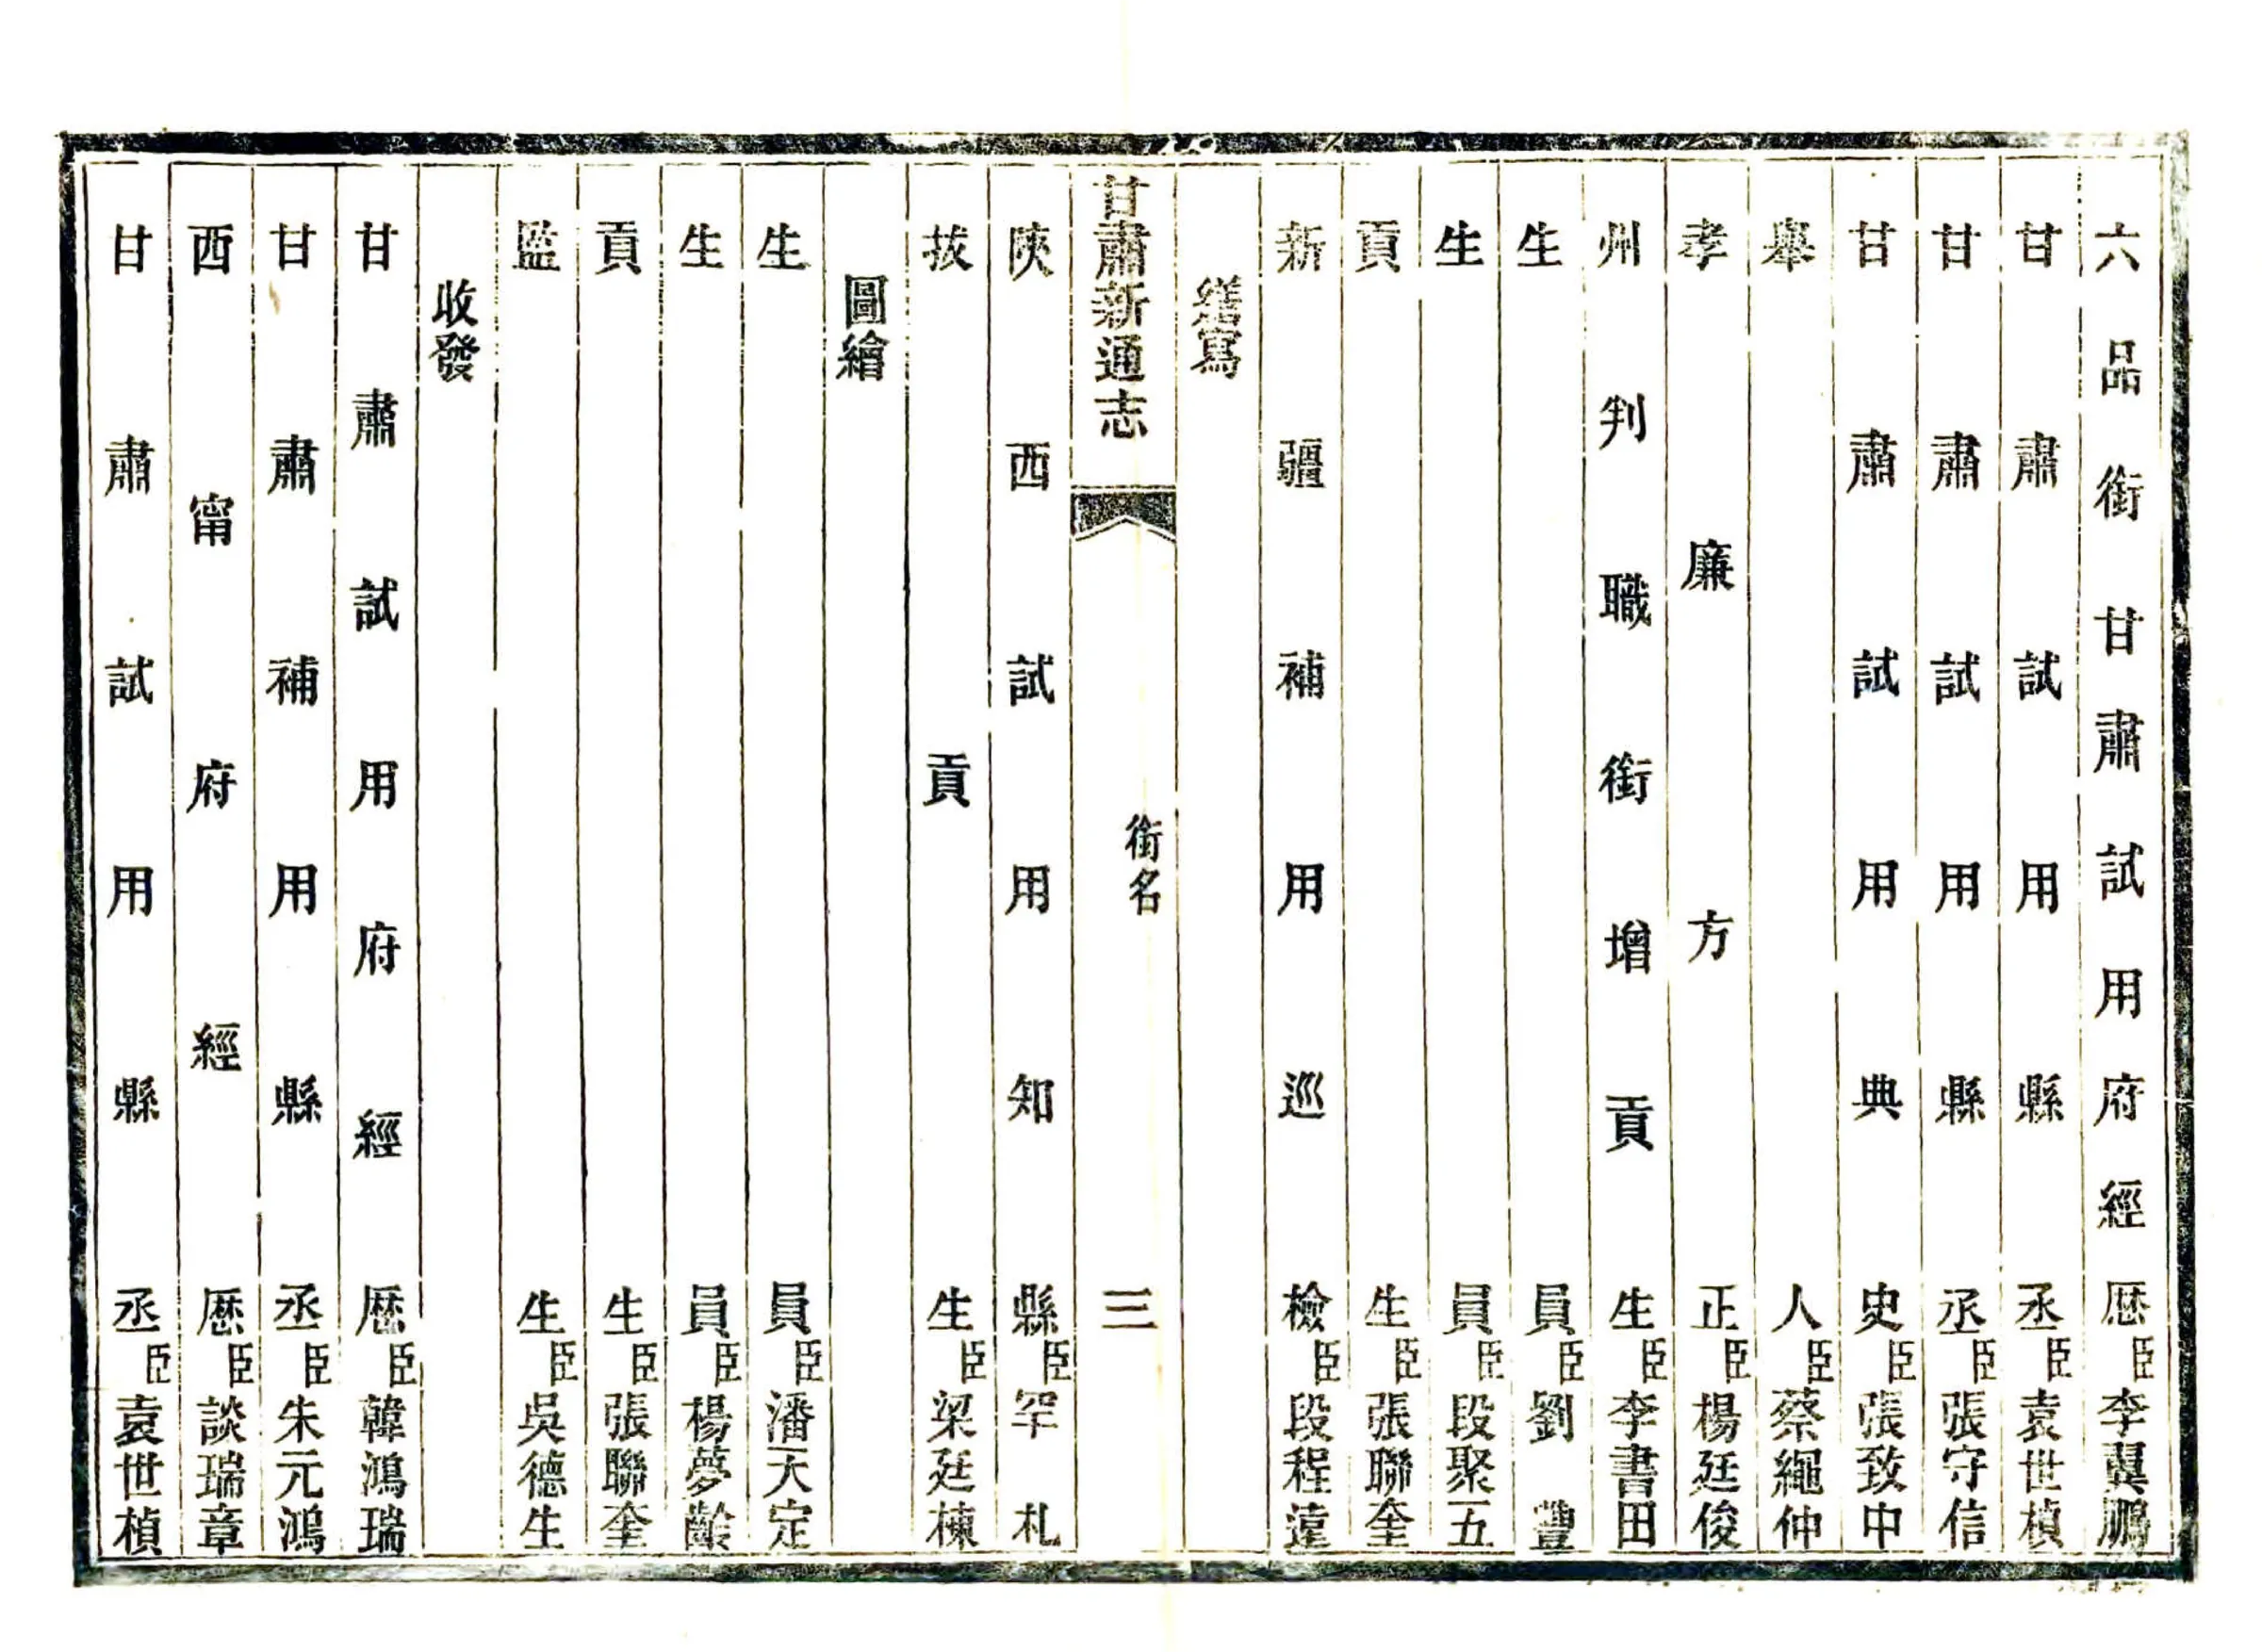 六品銜甘肅試用府經歷臣李翼鵬
甘肅試用縣丞臣袁世楨
甘肅試用縣丞臣張守信
甘肅試用典史臣張致中
舉人臣蔡繩仲
孝廉方正臣楊廷俊
州判職銜增貢生臣李書田
生員臣劉豐
生員臣段聚五
貢生臣張聯奎
新疆補用巡檢臣段程遠
繕寫
甘肅新通志
銜名
三
陝西試用知縣臣罕札
拔貢生臣梁廷棟
圖繪
生員臣潘天定
生員臣楊夢齡
貢生臣張聯奎
監生臣吳德生
收發
甘肅試用府經歷臣韓鴻瑞
甘肅補用縣丞臣朱元鴻
西甯府經歷臣談瑞章
甘肅試用縣丞臣袁世楨